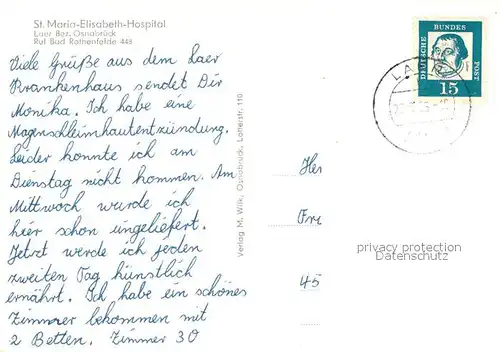 St. Maria-Elisabeth-Hospital
Laer Bez. Osnabrück
Ruf Bad Rothenfelde 448
Viele Grüße aus dem Laer
Krankenhaus sendet Dir
Monika. Ich habe eine
Magenschleimhautentzündung.
Leider konnte ich am
Dienstag nicht kommen. Am
Mittwoch wurde ich
hier schon eingeliefert.
Jetzt werde ich jeden
zweiten Tag künstlich
ernährt. Ich habe ein schönes
Zimmer bekommen mit
2 Betten. Zimmer 30
Verlag M. Wilk, Osnabrück, Lotterstr. 110
DEUTSCHE BUNDES POST
15
LAER
Her
Fre
45
privacy protection
Datenschutz